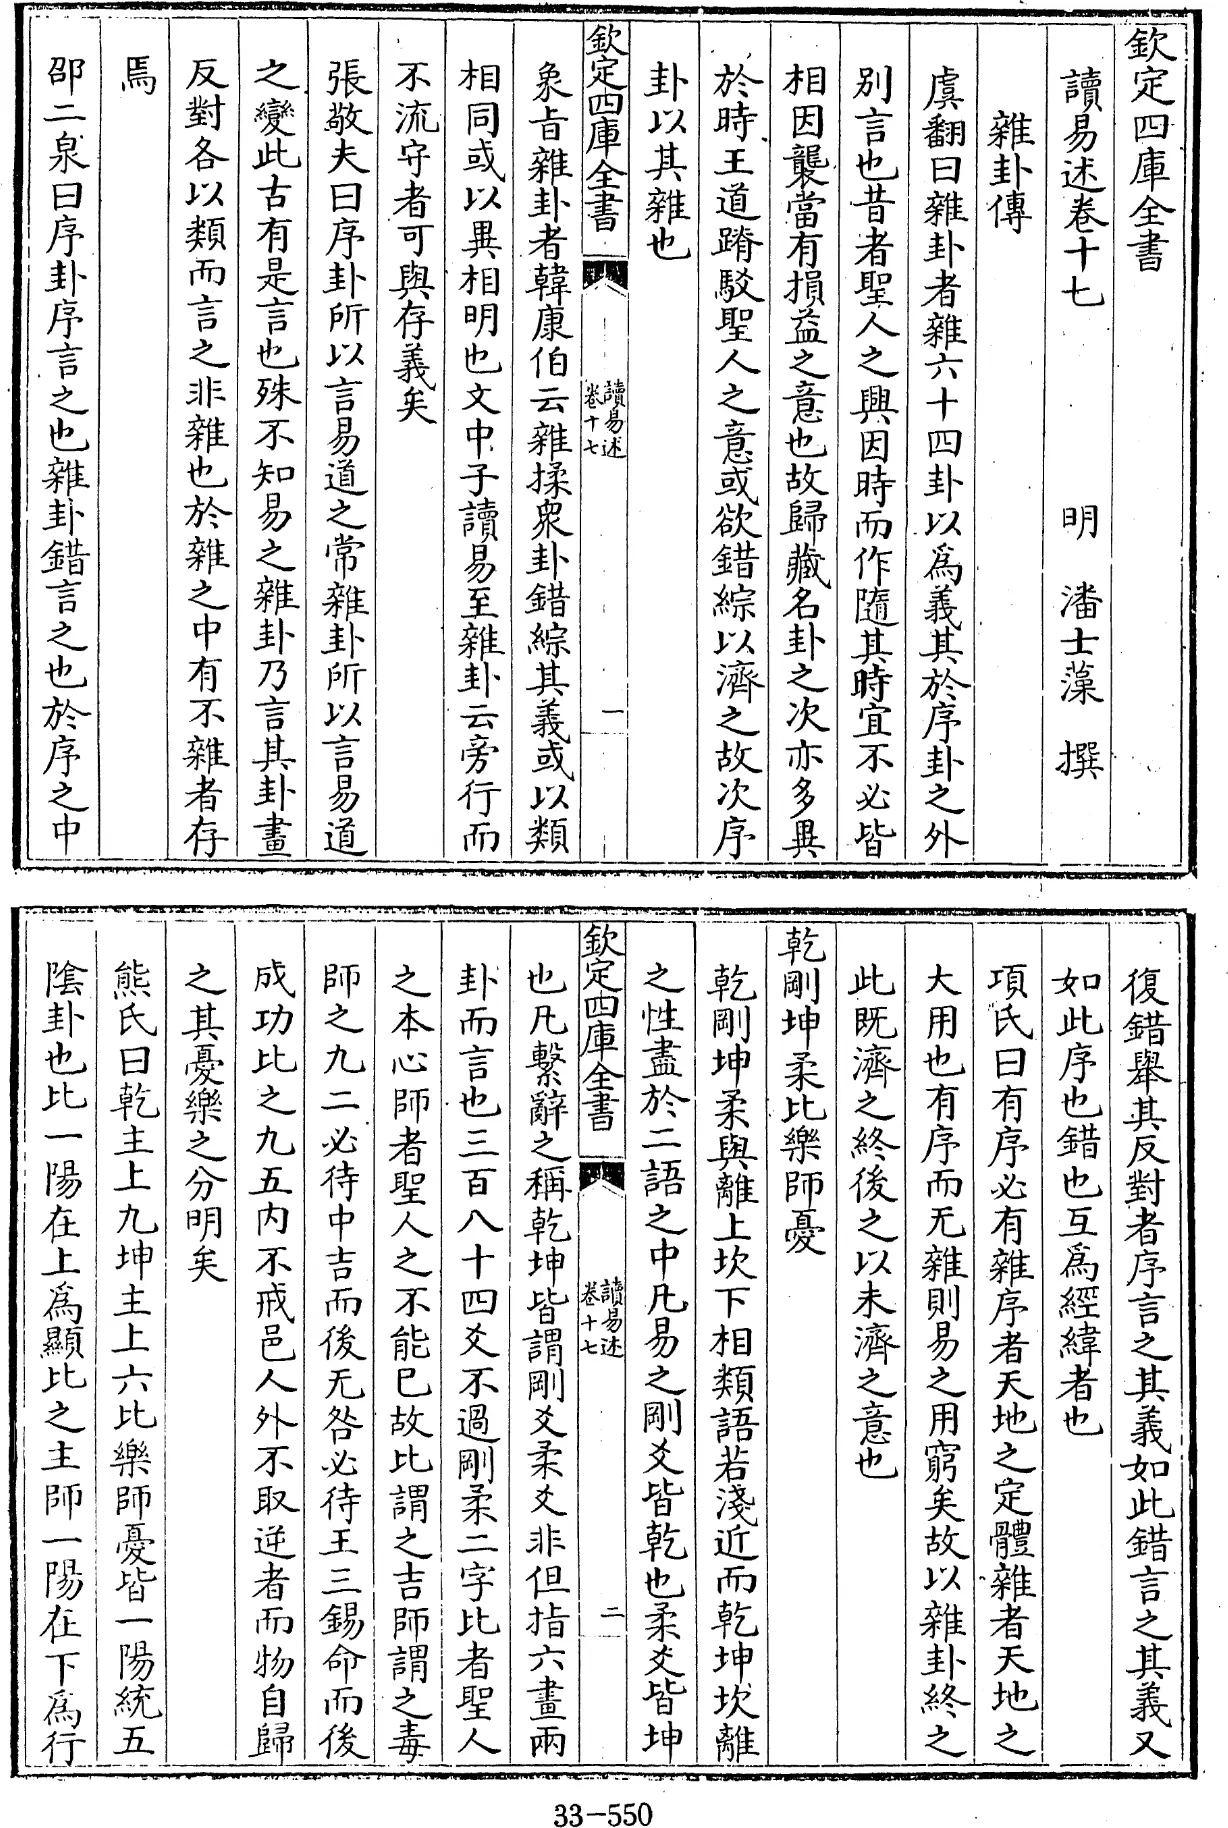 欽定四庫全書
讀易述卷十七　明　潘士藻　撰
雜卦傳
虞翻曰雜卦者雜六十四卦以爲義其於序卦之外
別言也昔者聖人之興因時而作隨其時宜不必皆
相因襲當有損益之意也故歸藏名卦之次亦多異
於時王道踳駁聖人之意或欲錯綜以濟之故次序
卦以其雜也
欽定四庫全書　讀易述卷十七　一
象旨雜卦者韓康伯云雜揉衆卦錯綜其義或以類
相同或以異相明也文中子讀易至雜卦云旁行而
不流守者可與存義矣
張敬夫曰序卦所以言易道之常雜卦所以言易道
之變此古有是言也殊不知易之雜卦乃言其卦畫
反對各以類而言之非雜也於雜之中有不雜者存
焉
邵二泉曰序卦序言之也雜卦錯言之也於序之中
復錯舉其反對者序言之其義如此錯言之其義又
如此序也錯也互爲經緯者也
項氏曰有序必有雜序者天地之定體雜者天地之
大用也有序而无雜則易之用窮矣故以雜卦終之
此既濟之終後之以未濟之意也
乾剛坤柔比樂師憂
乾剛坤柔與離上坎下相類語若淺近而乾坤坎離
之性盡於二語之中凡易之剛爻皆乾也柔爻皆坤
欽定四庫全書　讀易述卷十七　二
也凡繫辭之稱乾坤皆謂剛爻柔爻非但指六畫兩
卦而言也三百八十四爻不過剛柔二字比者聖人
之本心師者聖人之不能已故比謂之吉師謂之毒
師之九二必待中吉而後无咎必待王三錫命而後
成功比之九五内不戒邑人外不取逆者而物自歸
之其憂樂之分明矣
熊氏曰乾主上九坤主上六比樂師憂皆一陽統五
陰卦也比一陽在上爲顯比之主師一陽在下爲行
33-550